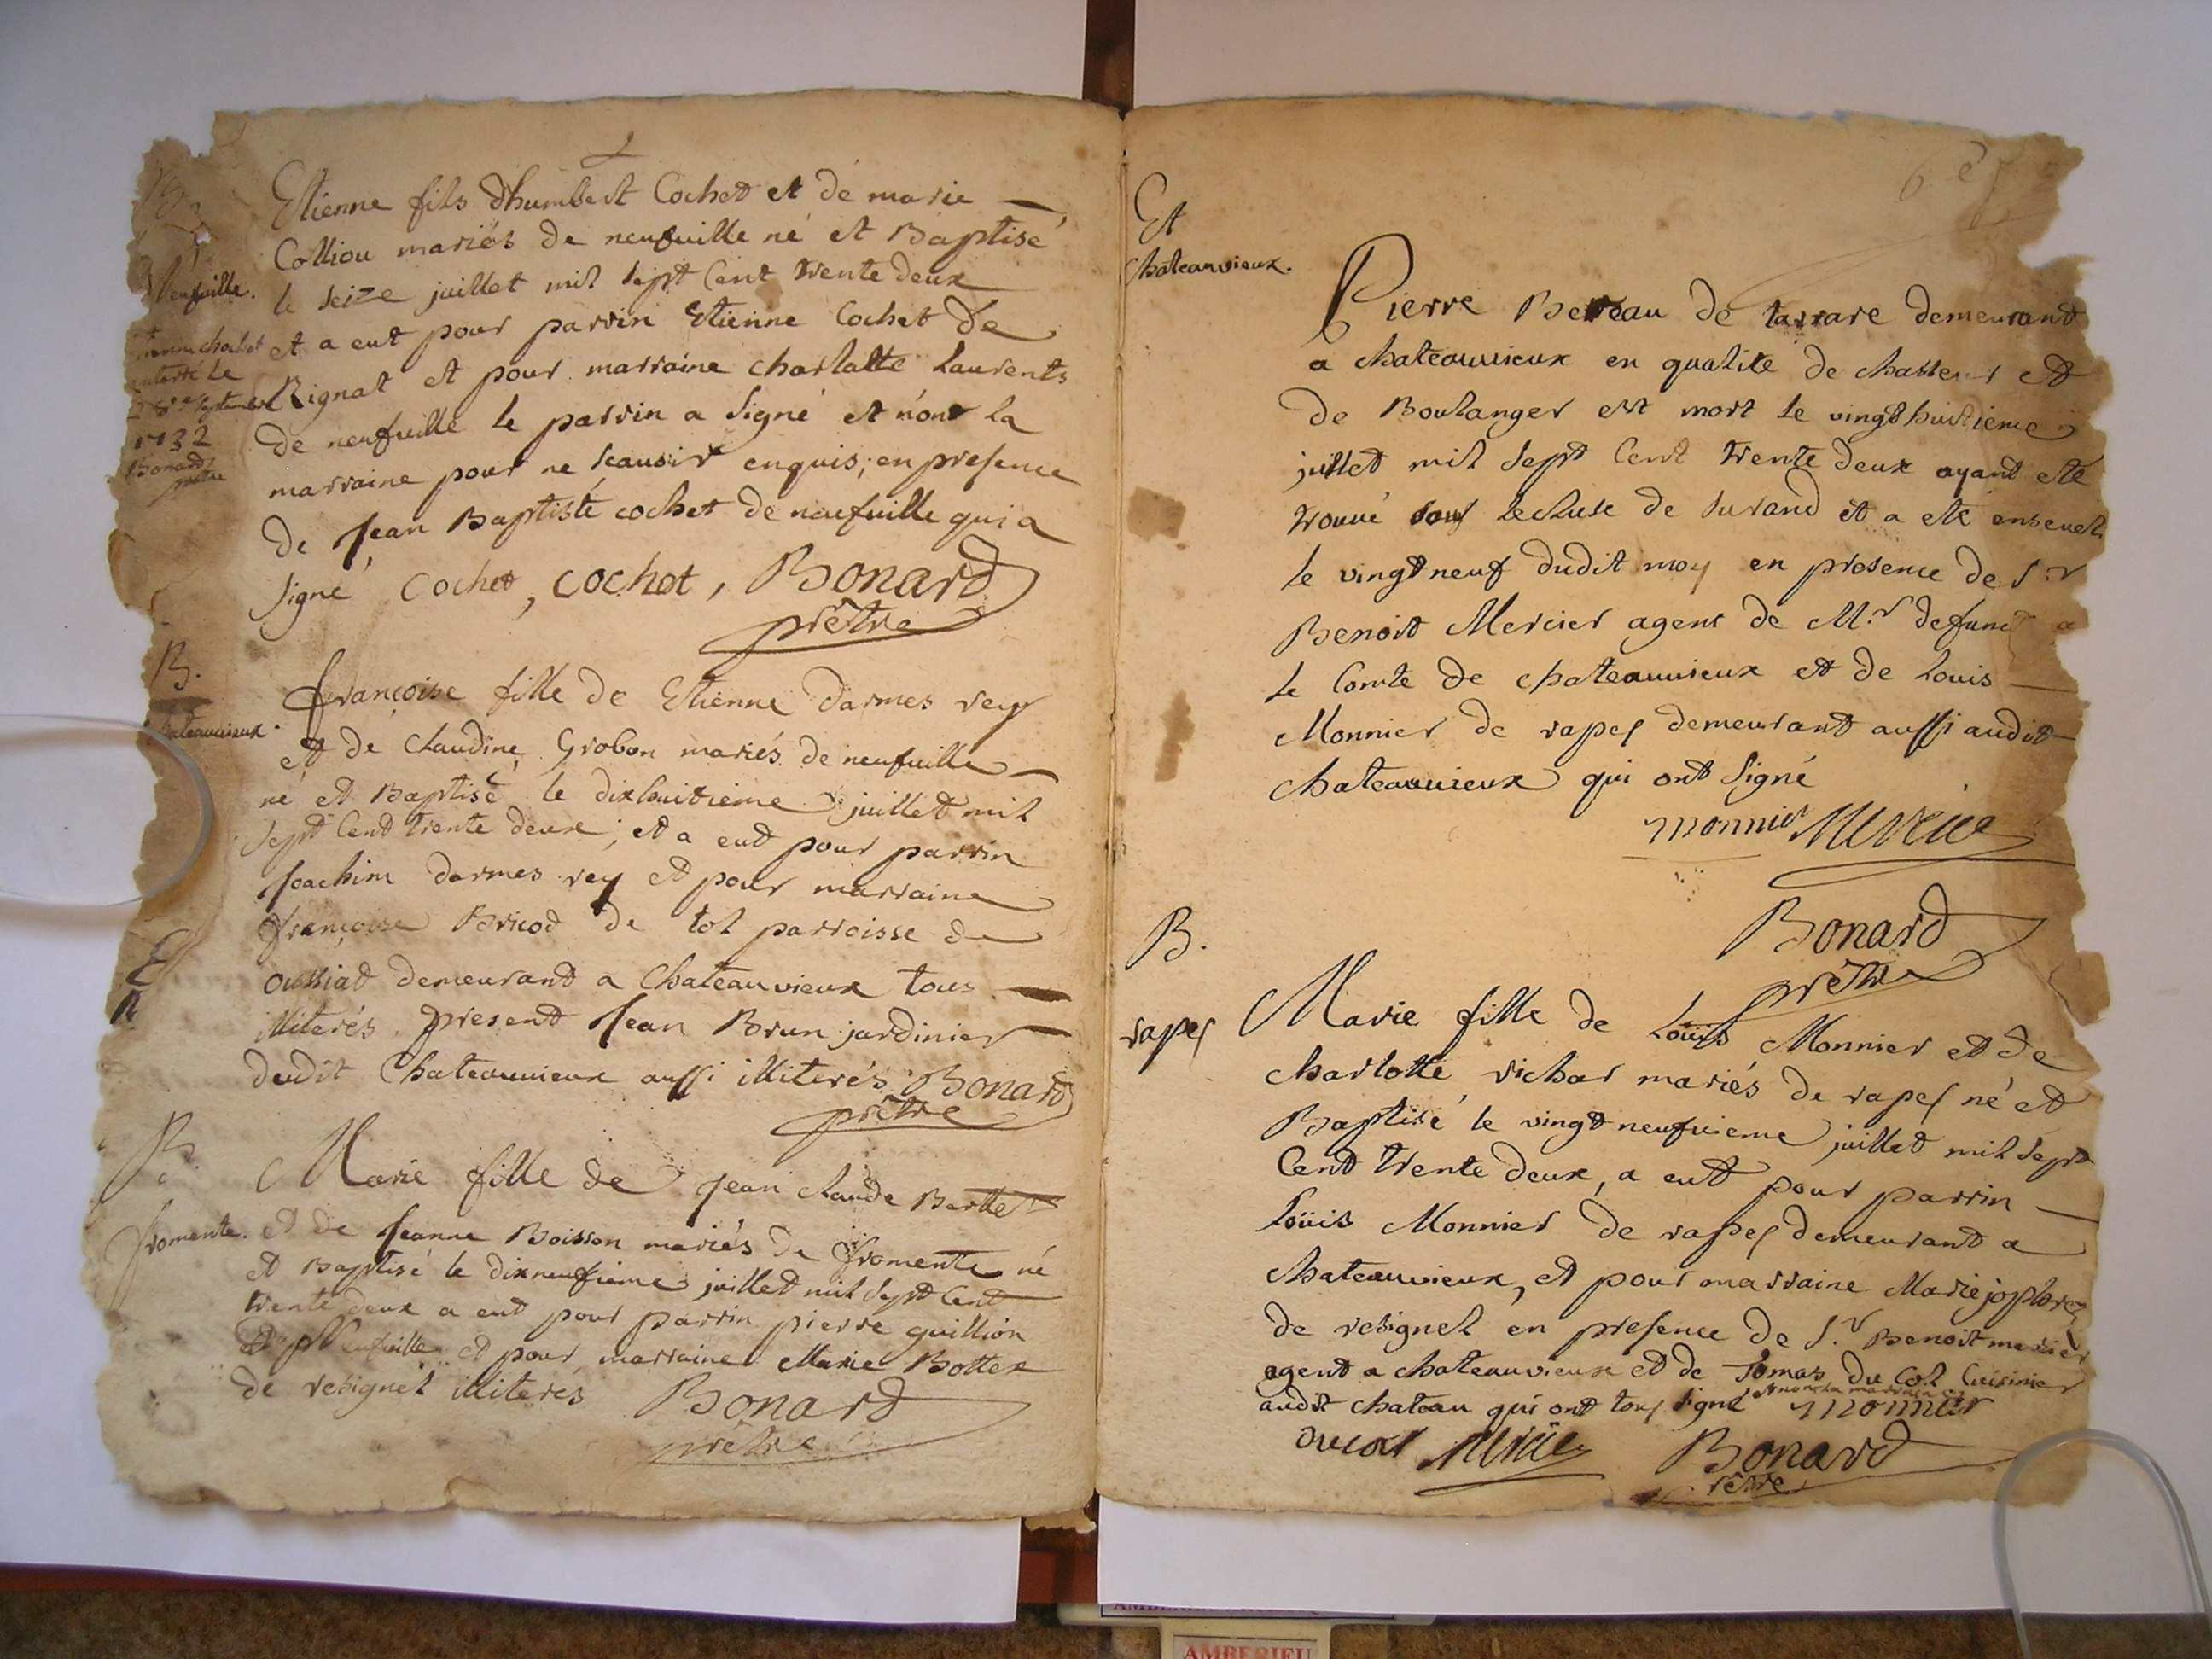 B.
Neufville.
Etienne fils d'humbert Cochet et de marie
Colliou mariés de neufville né et Baptisé
le seize juillet mil sept Cent trente deux
et a eut pour parrin Etienne Cochet de
Rignat et pour marraine charlotte Laurents
de neufville le parrin a signé et non la
marraine pour ne scauoir enquis; en presence
de Jean Baptiste cochet de neufville qui a
signé Cochet, cochet, Bonard
prêtre
chochet
enterré le
septembre
1732
Bonard
prêtre
B.
hateauvieux.
françoise fille de Etienne darmes rey
et de Claudine Grobon mariés de neufville
né et Baptisé le dixhuitieme juillet mil
sept Cent trente deux, et a eut pour parrin
Joachim darmes rey et pour marraine
françoise Bricod de tol parroisse de
oussiat demeurant a Chateauvieux tous
illiterés present Jean Brun jardinier
dudit Chateauvieux aussi illiterés Bonard
prêtre
B.
fromente.
Marie fille de Jean claude Berthet
et de Jeanne Boisson mariés de fromente né
et Baptisé le dixneufieme juillet mil sept Cent
trente deux a eut pour parrin pierre guillion
de Neufville et pour marraine Marie Bottex
de resignel illiterés Bonard
prêtre
Et
chateauvieux.
Pierre de tarrare demeurant
a chateauvieux en qualite de chasseur et
de Boulanger est mort le vingt huitieme
juillet mil sept Cent trente deux ayant eté
trouvé sous lecluse de surand et a eté enseveli
le vingt neuf dudit moy en presence de Sr
Benoit Mercier agent de Mr defunct
le Comte de chateauvieux et de Louis
Monnier de rapes demeurant aussi audit
chateauvieux qui ont signé
monnier Mercier
Bonard
prêtre
B.
rapes
Marie fille de Loüis Monnier et de
charlotte richar mariés de rapes né et
Baptisé le vingt neufvieme juillet mil sept
Cent trente deux, a eut pour parrin
Loüis Monnier de rapes demeurant a
chateauvieux, et pour marraine Marie
de resignel en presence de Sr Benoit mercier
agent a chateauvieux et de Tomas du Col Cuisinier
audit chateau qui ont tous signé et non la marraine monnier
ducol Mercier Bonard
prêtre
AMBERIEU